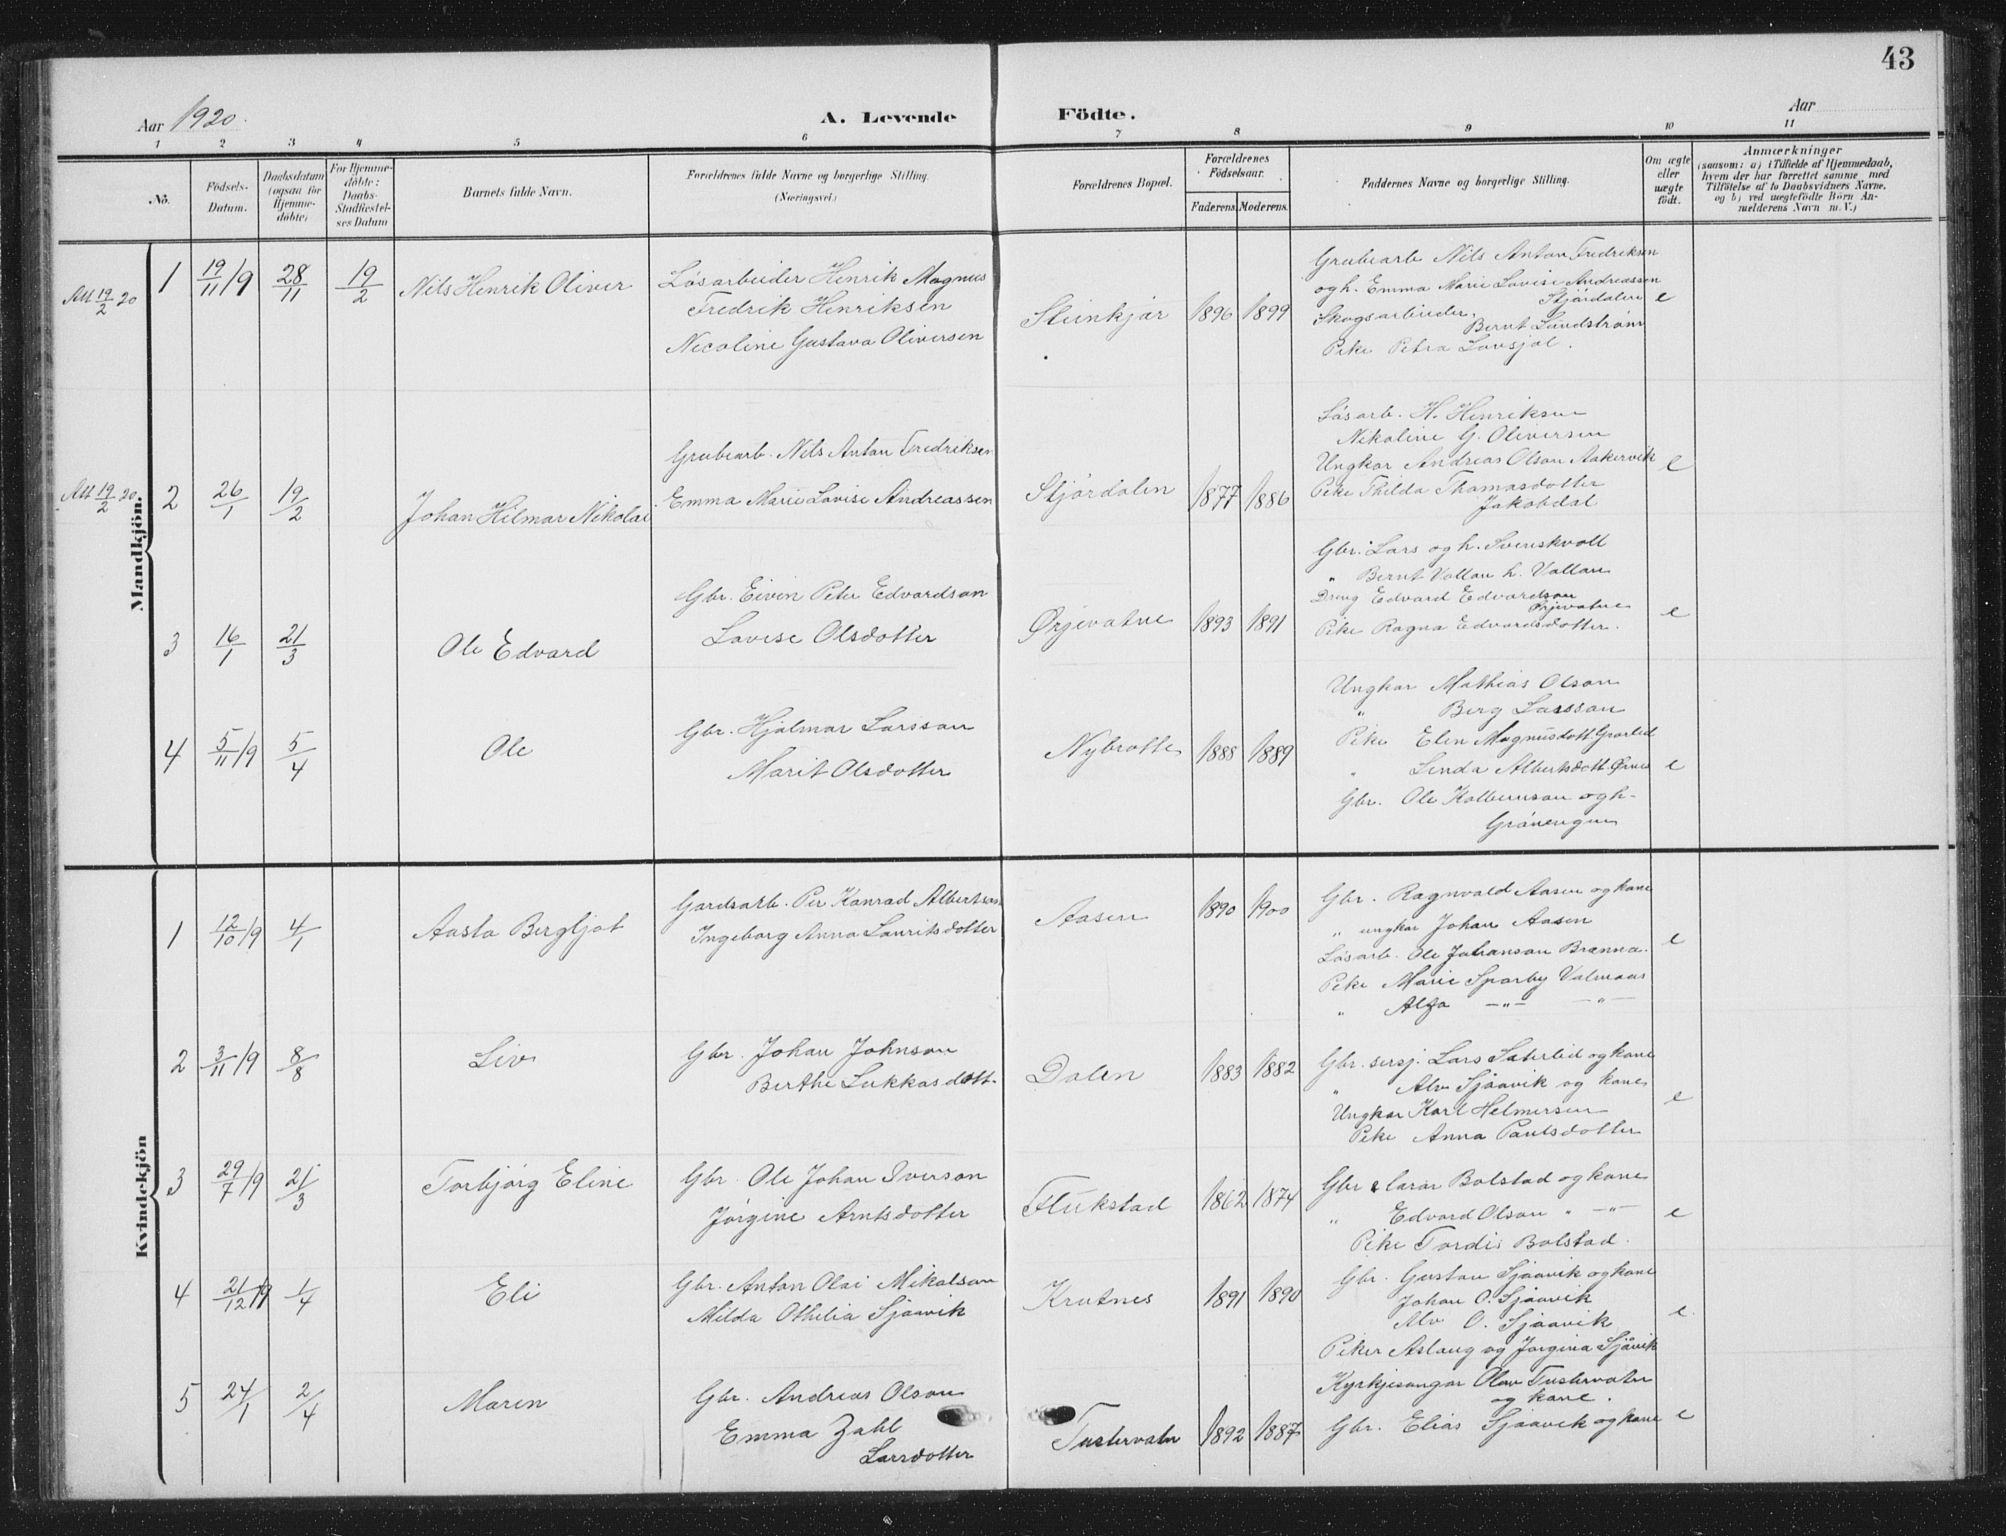 43
Aar 1920.
A. Levende Födte.
Aar
1 2 3 4 5 6 7 8 9 10 11
No.
Födsels-Datum.
Daabsdatum (ogsaa for Hjemme-döbte)
For Hjemme-döbte: Daabs-Stadfæstel-ses Datum
Barnets fulde Navn.
Forældrenes fulde Navne og borgerlige Stilling.
(Næringsvei.)
Forældrenes Bopæl.
Forældrenes Födselsaar.
Faderens. Moderens.
Faddernes Navne og borgerlige Stilling.
Om ægte eller uægte födt.
Anmærkninger
(saasom: a) i Tilfælde af Hjemmedaab,
hvem der har forrettet samme, med
Tilföielse af to Daabsvidners Navne,
og b) ved uægtefödte Börn An-
melderens Navn m. V.)
Mandkjön.
Att 19/2 20
1 19/11 19 28/11 19/2 Nils Henrik Oliver
Lösarbeider Henrik Magnus
Fredrik Henriksen
Nicoline Gustava Oliversen
Steinkjär 1896 1899
Grubearb Nils Anton Fredriksen
og h. Emma Marie Lovise Andreassen
Stjördalen
Skogsarbeider.
Bernt Lundström
Peke Petra Lovsjøl.
e
Att 19/2 20
2 26/1 19/2 Johan Hilmar Nikolai
Grubearb. Nils Anton Fredriksen
Emma Marie Lovise Andreassen
Stjördalen 1877 1886
Lösarb. H. Henriksen
Nikoline G. Oliversen
Ungkar Andreas Olson Aakervik
Peke Thilda Thomasdotter
Jakobdal
e
3 16/1 21/3 Ole Edvard
Gbr. Eivin Peter Edvardson
Lovise Olsdotter
Ørjevatne 1893 1891
Gbr. Lars og h. Svenskvoll
" Bernt Vollan h. Vollan
Dreng Edvard Edvardson
Ørjevatne
Peke Ragna Edvardsdotter.
e
4 5/11 19 5/4 Ole
Gbr. Hjalmar Larsson
Marit Olsdotter
Nybrotte 1888 1889
Ungkar Mathias Olson
" Berg Larsson
Peke Elen Magnusdott.
" Linda Albertsdott.
Gbr. Ole Kolbeinson og h.
Grånengen
e
Kvindekjön
1 12/10 19 4/1 Aasta Bergljot
Gardsarb. Per Konrad Albertson
Ingeborg Anna Lauritsdotter
Aasen 1890 1900
Gbr. Ragnvald Aasen og kane
" ungkar Johan Aasen
Lösarb. Ole Johanson Brænna.
Peke Marie Sparby Valmaas
" Alfa —"— —"—
e
2 3/11 19 8/8 Liv
Gbr. Johan Johnson
Berthe Lukkasdott.
Dalen 1883 1882
Gbr. sersj. Lars Sæterlid og kane
" Alv Sjåavik og kane
Ungkar Karl Helmersen
Peke Anna Paulsdotter
e
3 29/7 19 21/3 Torbjörg Eline
Gbr. Ole Johan Iverson
Jörgine Arntsdotter
Flukstad 1862 1874
Gbr lærar Bolstad og kane
" Edvard Olson " —"—
Peke Tordis Bolstad.
e
4 21/12 19 1/4 Eli
Gbr. Anton Olai Mikalson
Milda Othilia Sjåavik
Krutnes 1891 1890
Gbr. Gustav Sjåavik og kane
Johan O. Sjåavik
Alv O. Sjåavik
Peker Aslaug og Jörgina Sjåvik
e
5 24/1 2/4 Maren
Gbr. Andreas Olson
Emma Zahl
Larsdotter
Tustervatn 1892 1887
Kyrkjesongar Olav Tustervatn
og kane.
Gbr. Elias Sjåavik og kane
e